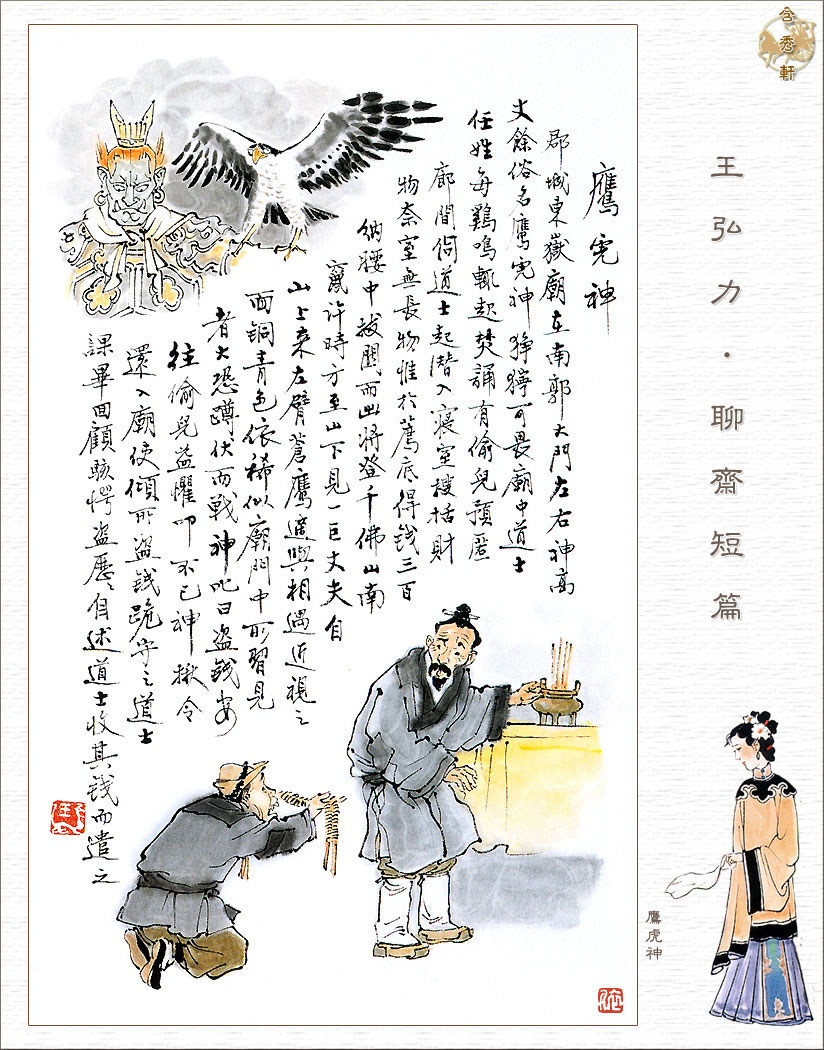 含秀軒
王弘力·聊齋短篇
鷹虎神
郡城東嶽廟在南郭大門左右神高
丈餘俗名鷹虎神猙獰可畏廟中道士
任姓每鷄鳴輒起焚誦有偷兒預匿
廊間伺道士起潛入寢室搜括財
物奈室無長物惟於薦底得钱三百
納腰中拔關而出將登千佛山南
竄许時方至山下見一巨丈夫自
山上来左臂蒼鷹適與相遇近視之
面铜青色依稀似廟門中所習見
者大恐蹲伏而戰神叱曰盗钱安
往偷兒益懼叩不已神揪令
還入廟使傾所盗钱跪守之道士
課畢回顧駭愕盗歷々自述道士收其钱而遣之
鷹虎神